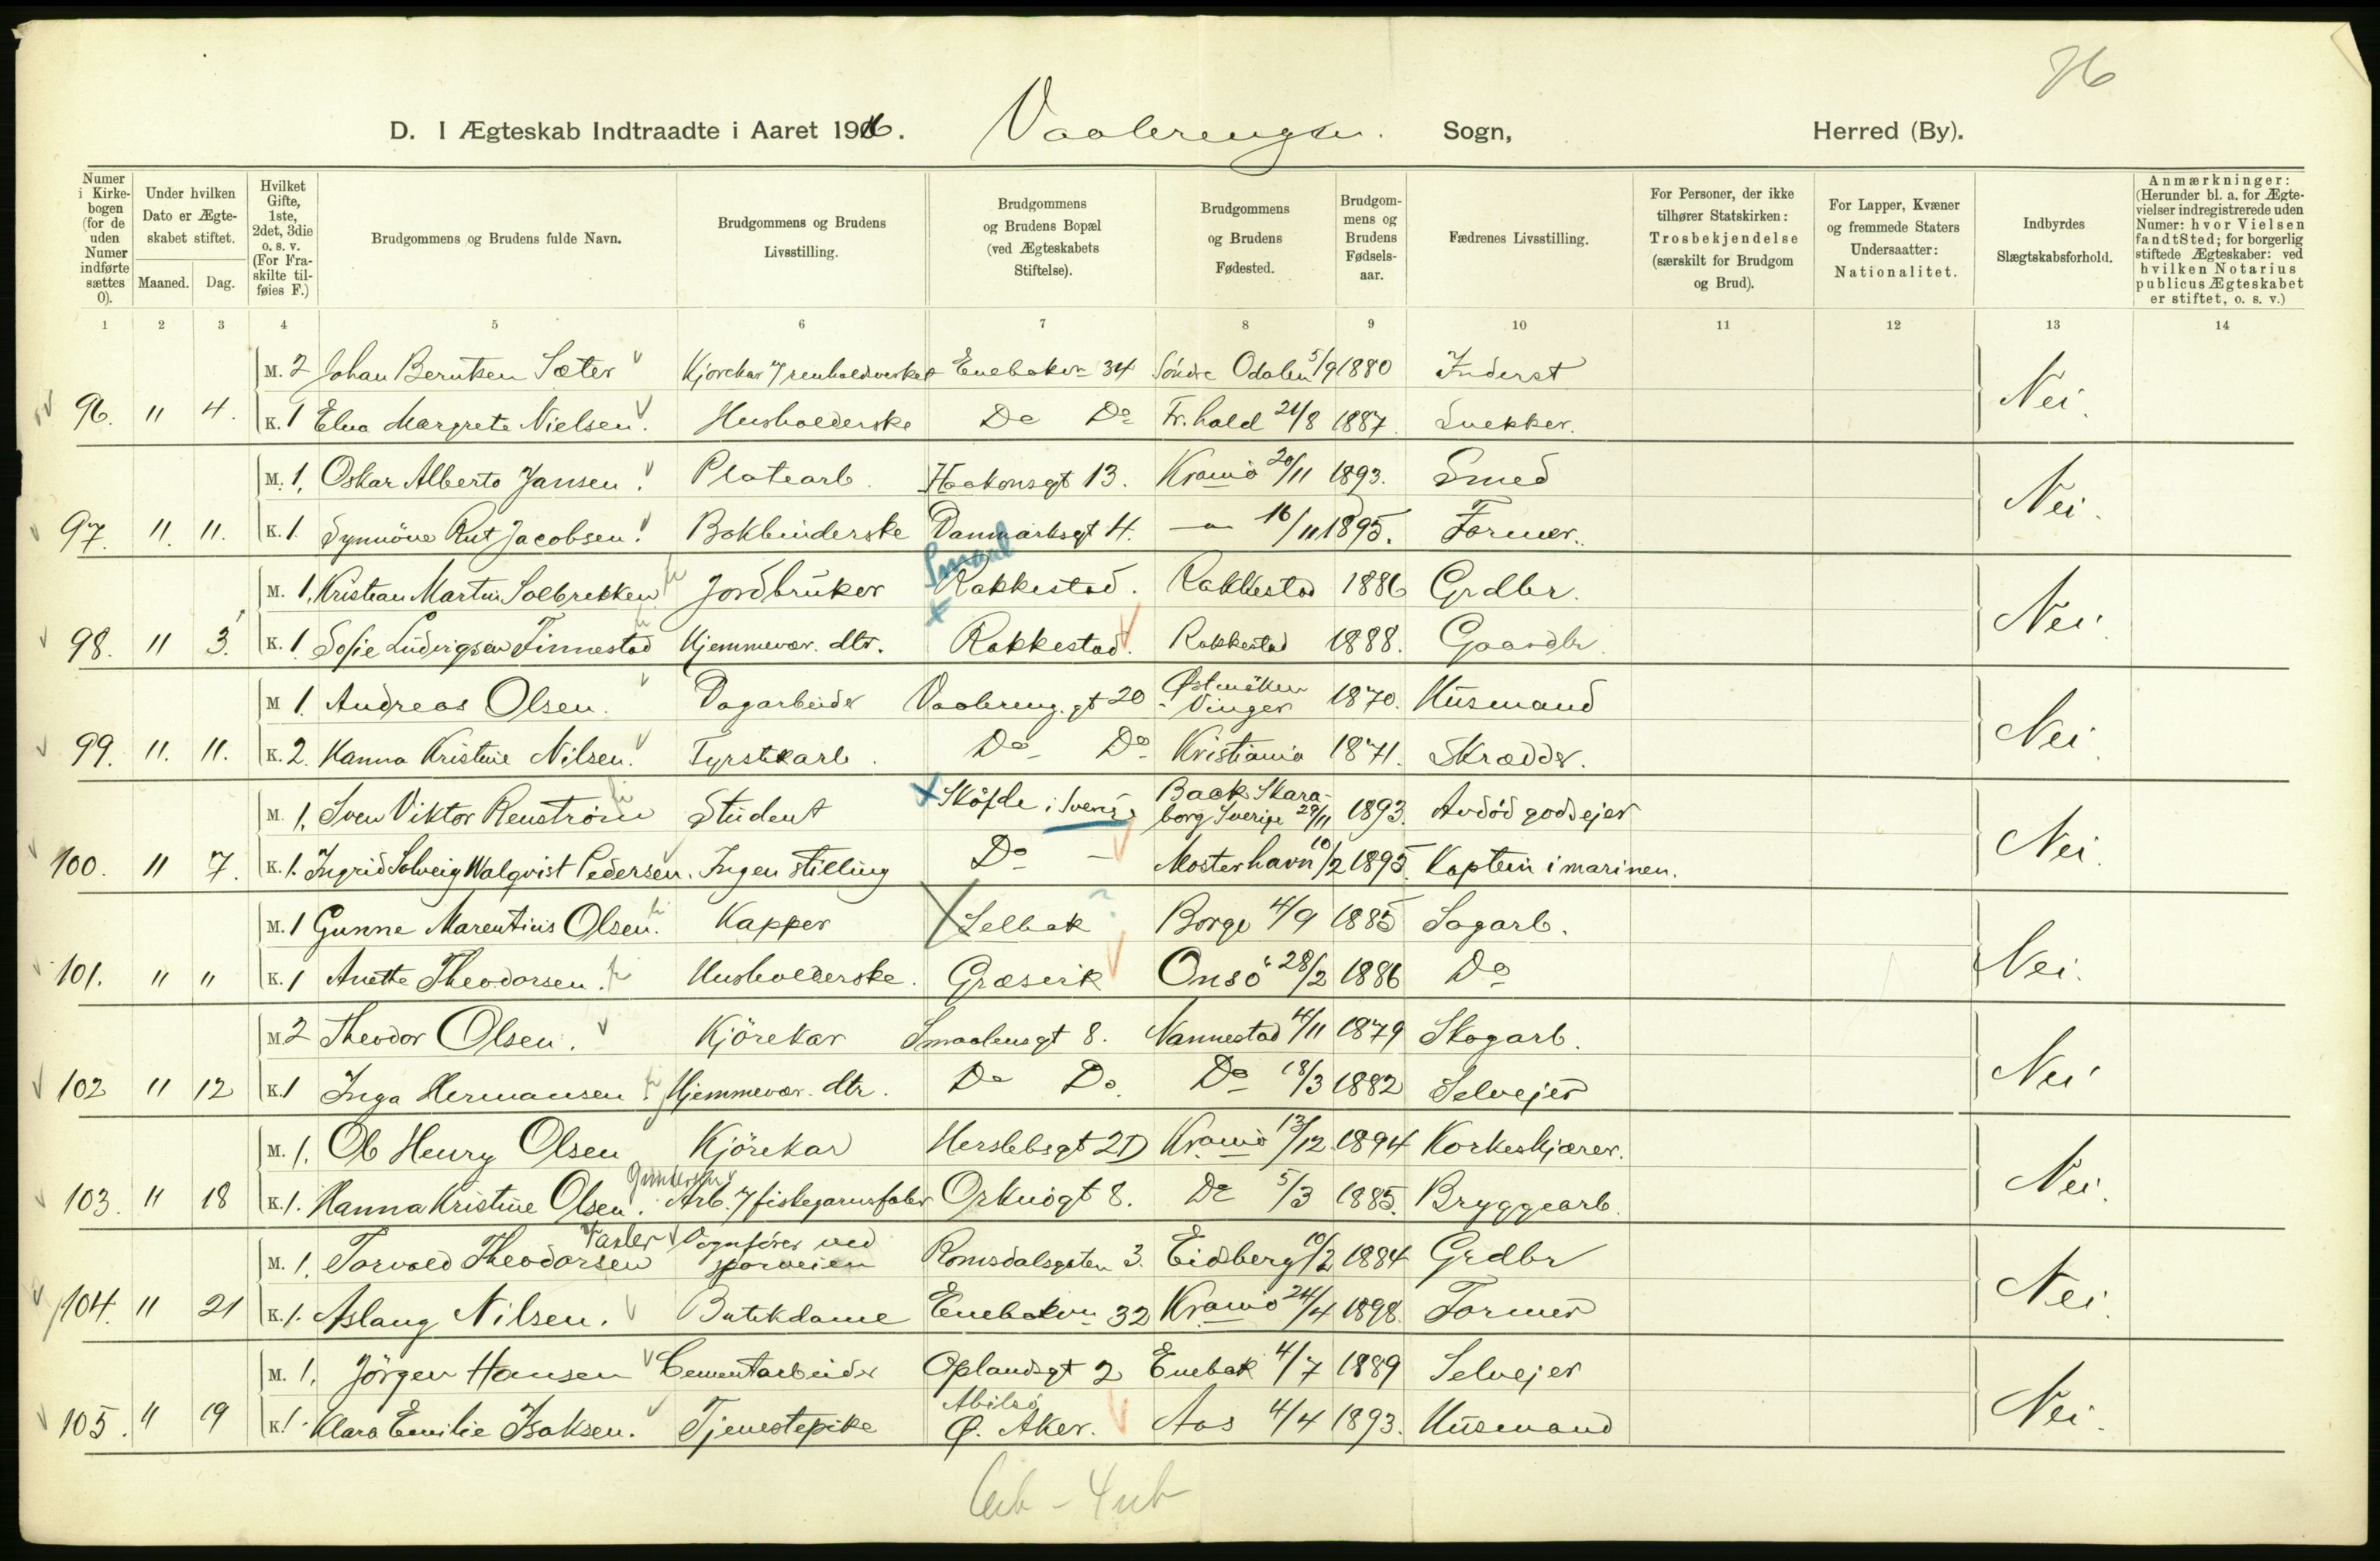 76
D. I Ægteskab Indtraadte i Aaret 1916. Vaalerengen. Sogn, Herred (By).
Numer i Kirkebogen (for de uden Numer indførte sættes 0).
Under hvilken Dato er Ægteskabet stiftet.
Maaned. Dag.
Hvilket Gifte, 1ste, 2det, 3die o. s. v. (For Fraskilte tilføies F.)
Brudgommens og Brudens fulde Navn.
Brudgommens og Brudens Livsstilling.
Brudgommens og Brudens Bopæl (ved Ægteskabets Stiftelse).
Brudgommens og Brudens Fødested.
Brudgommens og Brudens Fødselsaar.
Fædrenes Livsstilling.
For Personer, der ikke tilhører Statskirken: Trosbekjendelse (særskilt for Brudgom og Brud).
For Lapper, Kvæner og fremmede Staters Undersaatter: Nationalitet.
Indbyrdes Slægtskabsforhold.
Anmærkninger: (Herunder bl. a. for Ægtevielser indregistrerede uden Numer: hvor Vielsen fandt Sted; for borgerlig stiftede Ægteskaber: ved hvilken Notarius publicus Ægteskabet er stiftet, o. s. v.)
1 2 3 4 5 6 7 8 9 10 11 12 13 14
M. 2 Johan Berntsen Sæter Kjørekar 7 renholdsverket Enebakvn 34 Söndre Odalen 5/9 1880 Inderst
96. " 4. K. 1 Elna Margrete Nielsen. Husholderske Do Do Fr.hald 21/8 1887 Snekker. Nei.
M. 1. Oskar Alberto Jansen. Platearb. Haakonsgt 13. Krania 20/11 1893. Smed
97. " 11. K. 1. Synnöve Rut Jacobsen. Bokbinderske Danmarksgt 4. — 16/11 1895. Former. Nei.
Smaal
M. 1. Kristian Martin Solbrekken Jordbruker Rakkestad. Rakkestad 1886 Grdbr.
98. " 3. K. 1. Sofie Ludvigsen Finnestad Hjemmevær. dtr. Rakkestad. Rakkestad 1888. Gaardbr. Nei.
M 1. Andreas Olsen. Dagarbeider Vaalereng.gt 20 Østmarken Vinger 1870. Husmand
99. " 11. K. 2. Hanna Kristine Nilsen. Fyrstikarb. Do Do Kristiania 1871. Skrædder. Nei
M. 1. Sven Viktor Renström Student Sköfde i Sverige Back Skaraborg Sverige 29/11 1893. Avdöd godsejer
100. " 7. K. 1. Ingrid Solveig Walqvist Pedersen. Ingen stilling Do - Mosterhavn 10/2 1895. Kaptein i marinen. Nei.
M. 1 Gunne Marentius Olsen. Kapper Selbak ? Borge 4/9 1885 Sagarb.
101. " " K. 1 Anette Theodorsen. Husholderske. Græsvik Onsö 28/2 1886 Do Nei.
M 2 Theodor Olsen. Kjörekar Smaalensgt 8. Nannestad 4/11 1879 Skogarb.
102 " 12 K. 1 Inga Hermansen. Hjemmevær. dtr. Do Do. Do 18/3 1882 Selvejer Nei
M. 1. Ole Henry Olsen Kjörekar Herslebsgt 2D Krania 13/12 1894 Korkeskjærer.
Gundersen
103. " 18 K. 1. Hanna Kristine Olsen. Arb. 7 fiskegarnsfabr Orknögt 8. Do 5/3 1885. Bryggearb. Nei.
M. 1. Torvald Theodorsen Vognfører ved sporveien Romsdalsgaten 3. Eidsberg 10/2 1884 Grdbr
104. " 21 K. 1. Aslaug Nilsen. Butikdame Enebakvn 32 Krania 24/4 1898. Former Nei.
M. 1. Jörgen Hansen Cementarbeider Oplandsgt 2 Enebak 4/7 1889 Selvejer
105. " 19 K. 1. Klara Emilie Isaksen. Tjenestepike Abilsö Ø. Aker. Aas 4/4 1893. Husmand Nei.